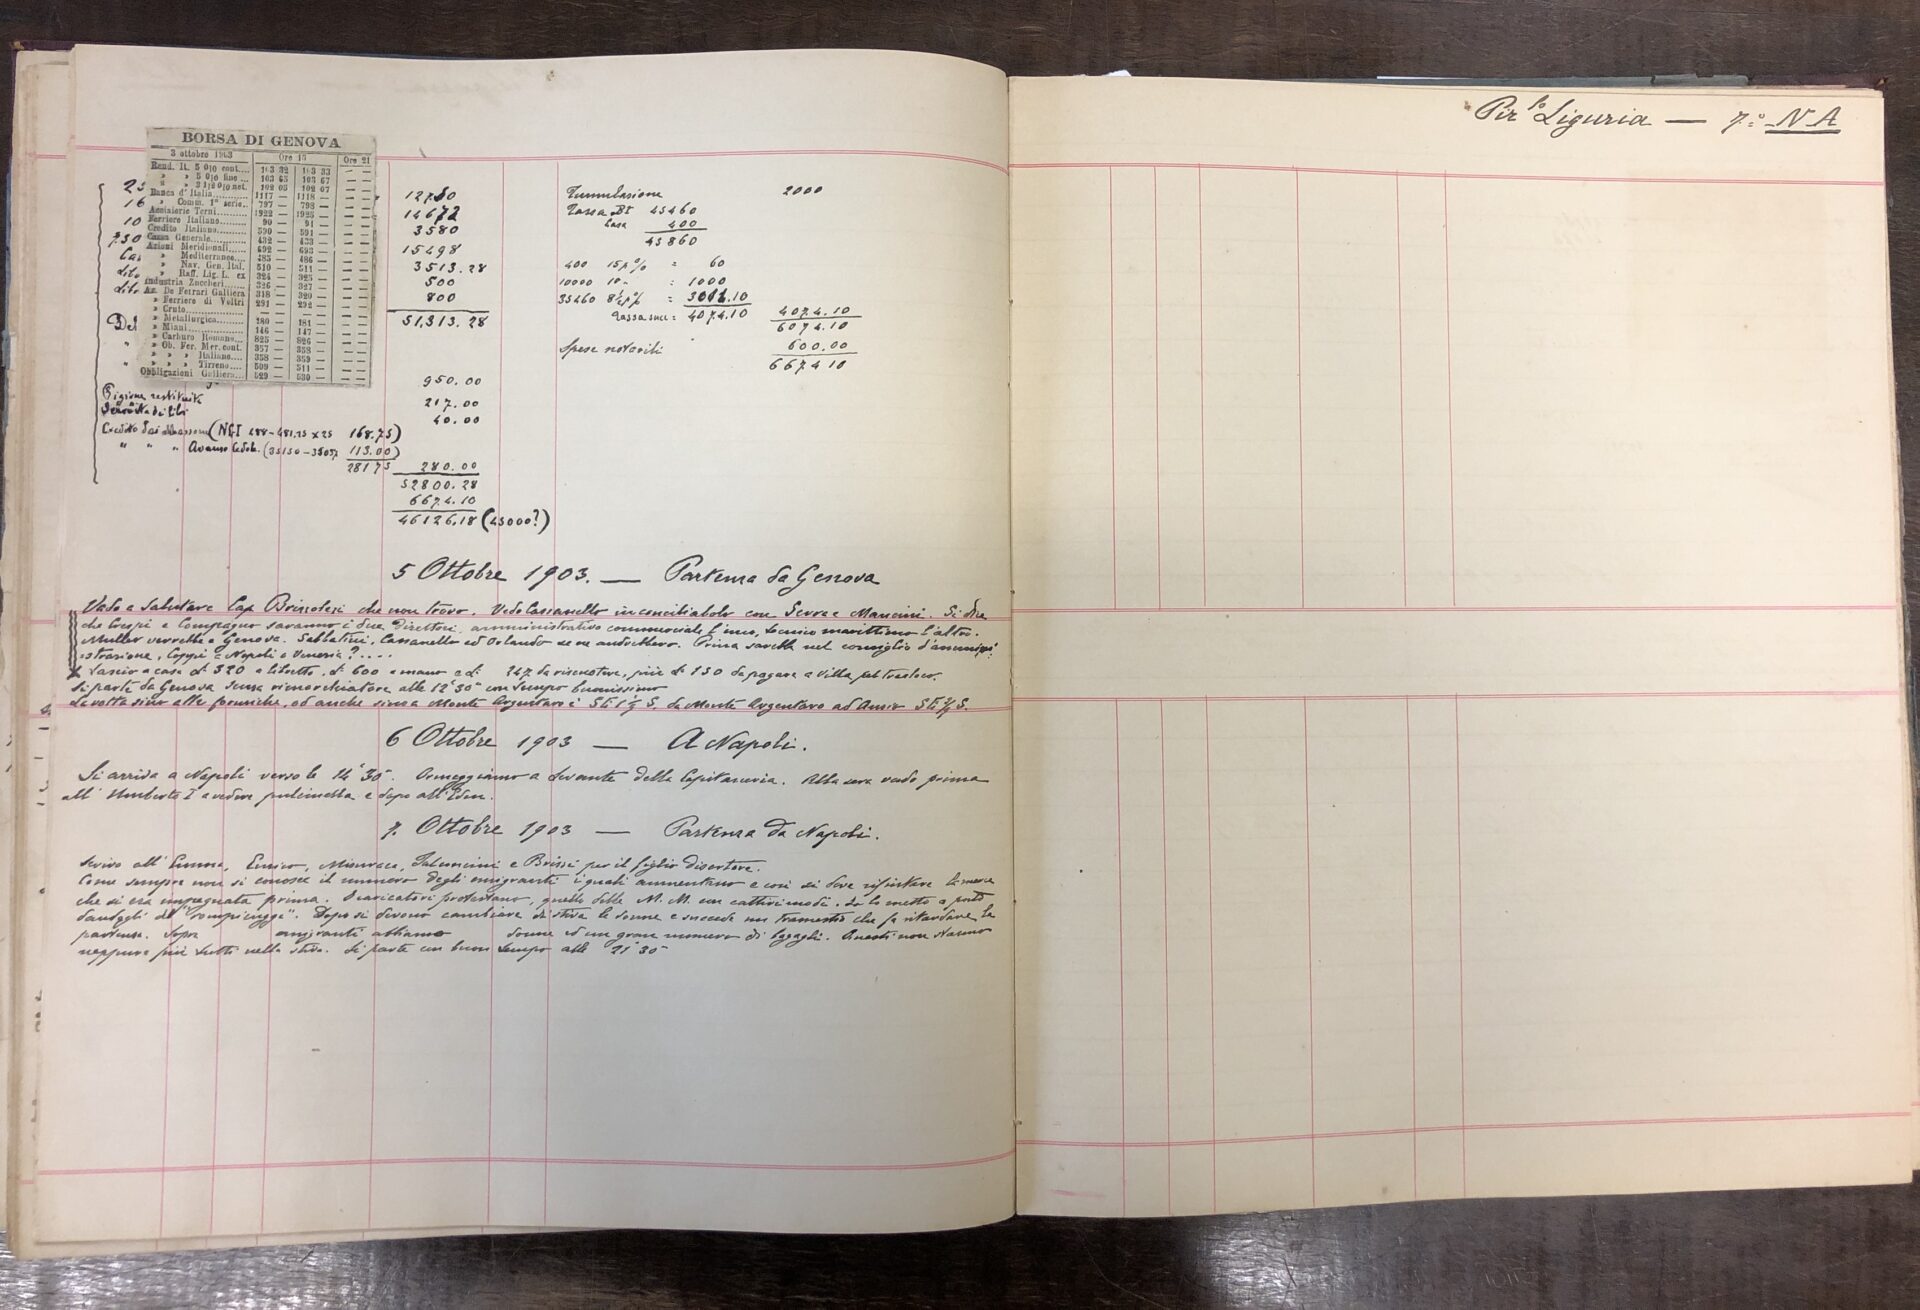 BORSA DI GENOVA
3 ottobre 1903 Ore 15 Ore 21
Rend. It. 5 0|0 cont.... 103 32 103 33 — —
» » 5 0|0 fine ... 103 65 103 67 — —
» » 3 1|2 0|0 net. 102 05 102 07 — —
Banca d'Italia 1117 — 1118 — — —
» Comm. 1ª serie.. 797 — 798 — — —
Acciaierie Terni 1922 — 1925 — — —
Ferriere Italiane 90 — 91 — — —
Credito Italiano 590 — 591 — — —
Cassa Generale 432 — 433 — — —
Azioni Meridionali 692 — 693 — — —
» Mediterranee 485 — 486 — — —
» Nav. Gen. Ital. 510 — 511 — — —
» Raff. Lig. L. ex 324 — 325 — — —
Industria Zuccheri 326 — 327 — — —
Az. De Ferrari Galliera 318 — 320 — — —
» Ferriere di Voltri 291 — 292 — — —
» Cruto — — — —
» Metallurgica 180 — 181 — — —
» Miani 146 — 147 — — —
» Carburo Romano 825 — 826 — — —
» Ob. Fer. Mer. cont. 357 — 358 — — —
» » » Italiane 358 — 359 — — —
» » » Tirreno 509 — 511 — — —
Obbligazioni Galliera 529 — 530 — — —
25
16
10
750
Cas
Lib
Lib
Del
12750
14672
3580
15498
3513.28
500
800
51,313.28
950.00
Pigione restituita 217.00
40.00
Credito (NGI 488-481.25 x 25 168.75)
" " " Avanzo 113.00
28175 280.00
52800.28
6674.10
46126.18 (45000?)
Tumulazione 2000
Tassa Bt 45460
Casa 400
45860
400 15 p% = 60
10000 10 " = 1000
35460 8½ p% = 3014.10
Tassa succ = 4074.10 4074.10
6074.10
Spese notarili 600.00
6674.10
5 Ottobre 1903. — Partenza da Genova
Vado a salutare Cap Brissolesi che non trovo. Vedo Cassanello in conciliabolo con Serra e Mancini. Si dice
che Crespi e Compagno saranno i due direttori, amministrativo commerciale l'uno, tecnico marittimo l'altro.
Muller verrebbe a Genova. Sabbatini, Cassanello ed Orlando se ne andrebbero. Prima sarebbe nel consiglio d'ammini=
=strazione, Coppi a Napoli e Venezia?....
X Lascio a casa £ 320 a libretto, £ 600 a mano e £ 247 da riscuotere, più £ 130 da pagare a Villa pel trasloco.
Si parte da Genova senza rimorchiatore alle 12h 30m con tempo buonissimo
La rotta sino alle formiche, ed anche sino a Monte Argentaro è SE ½ S, da Monte Argentaro ad Anzio SE ¾ S.
6 Ottobre 1903 — A Napoli.
Si arriva a Napoli verso le 14h 30m. Ormeggiamo a levante della Capitaneria. Alla sera vado prima
all' Umberto I a vedere pulcinella e dopo all'Eden.
7. Ottobre 1903 — Partenza da Napoli.
Scrivo all' Emma, Enrico, Misuraca, e Brissi per il figlio disertore.
Come sempre non si conosce il numero degli emigranti i quali aumentano e così si deve rifiutare la merce
che si era impegnata prima. I caricatori protestano, quello delle M. M. con cattivi modi. Io lo metto a posto
dandogli del "rompicoggi". Dopo si devono cambiare di stiva le donne e succede un tramestio che fa ritardare la
partenza. Sopra emigranti abbiamo donne ed un gran numero di bagagli. Questi non stanno
neppure più tutti nella stiva. Si parte con buon tempo alle 21h 30m
Pirfo Liguria — 7.° NA